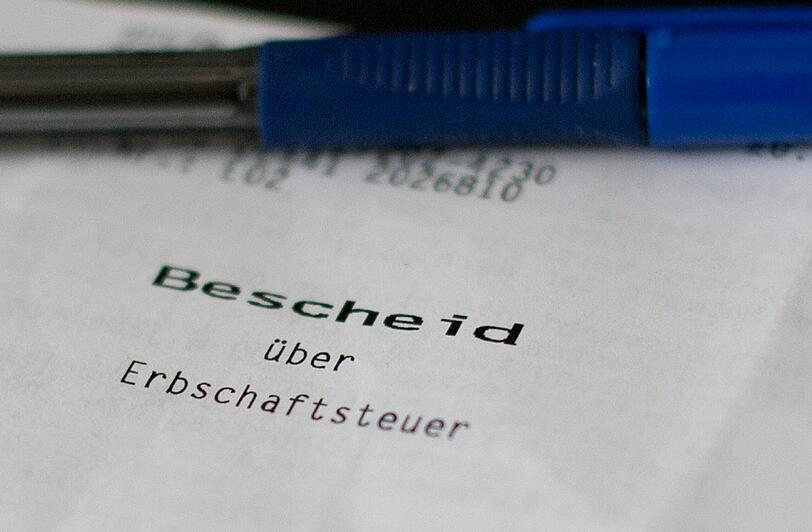 4230
E02 2026810
Bescheid
über
Erbschaftsteuer